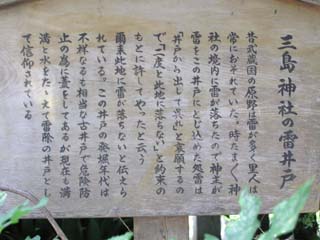 三島神社の雷井戸
昔武蔵国の原野は雷が多く里人は
常におそれていた。時たま〱神
社の境内に雷が落ちたので神主が
雷をこの井戸にとじ込めた処雷は
「井戸から出して呉れ」と哀願するの
で「二度と此地に落ちない」と約束の
もとに許してやったと云う
爾来此地に雷が落ちないと伝えら
れている。この井戸の発堀年代は
不詳なるも相当な古井戸で危険防
止の為に蓋をしてあるが現在も満
満と水をたゝえて雷除の井戸とし
て信仰されている